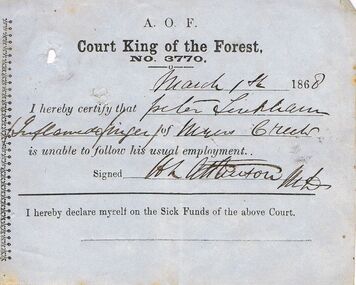 A. O. F.
Court King of the Forest,
NO. 3770.
March 1st 1868
I hereby certify that Peter
Inflamed finger of Myers Creek
is unable to follow his usual employment.
Signed H L Atkinson M.D
I hereby declare myself on the Sick Funds of the above Court.